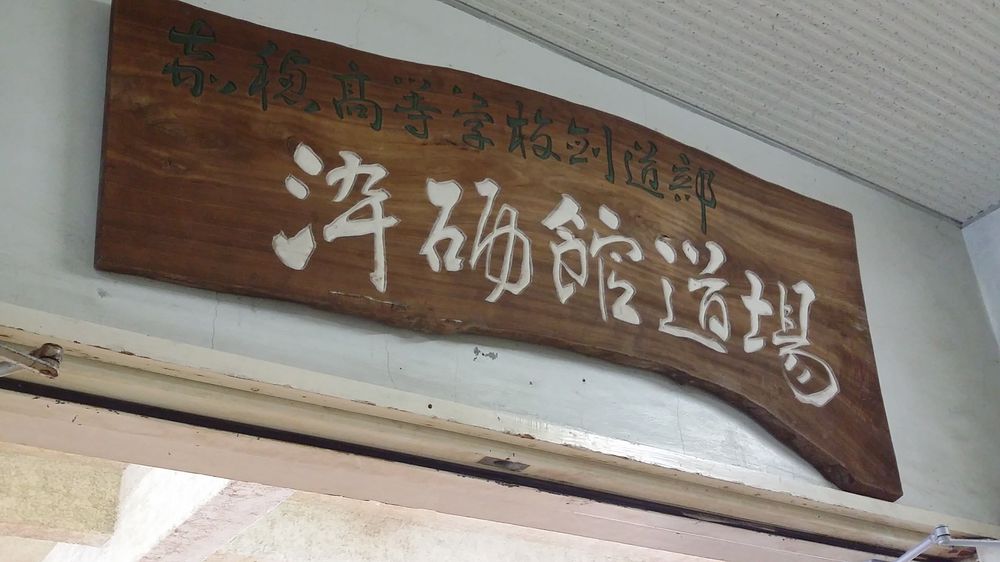 赤穂高等学校剣道部
浄砺館道場